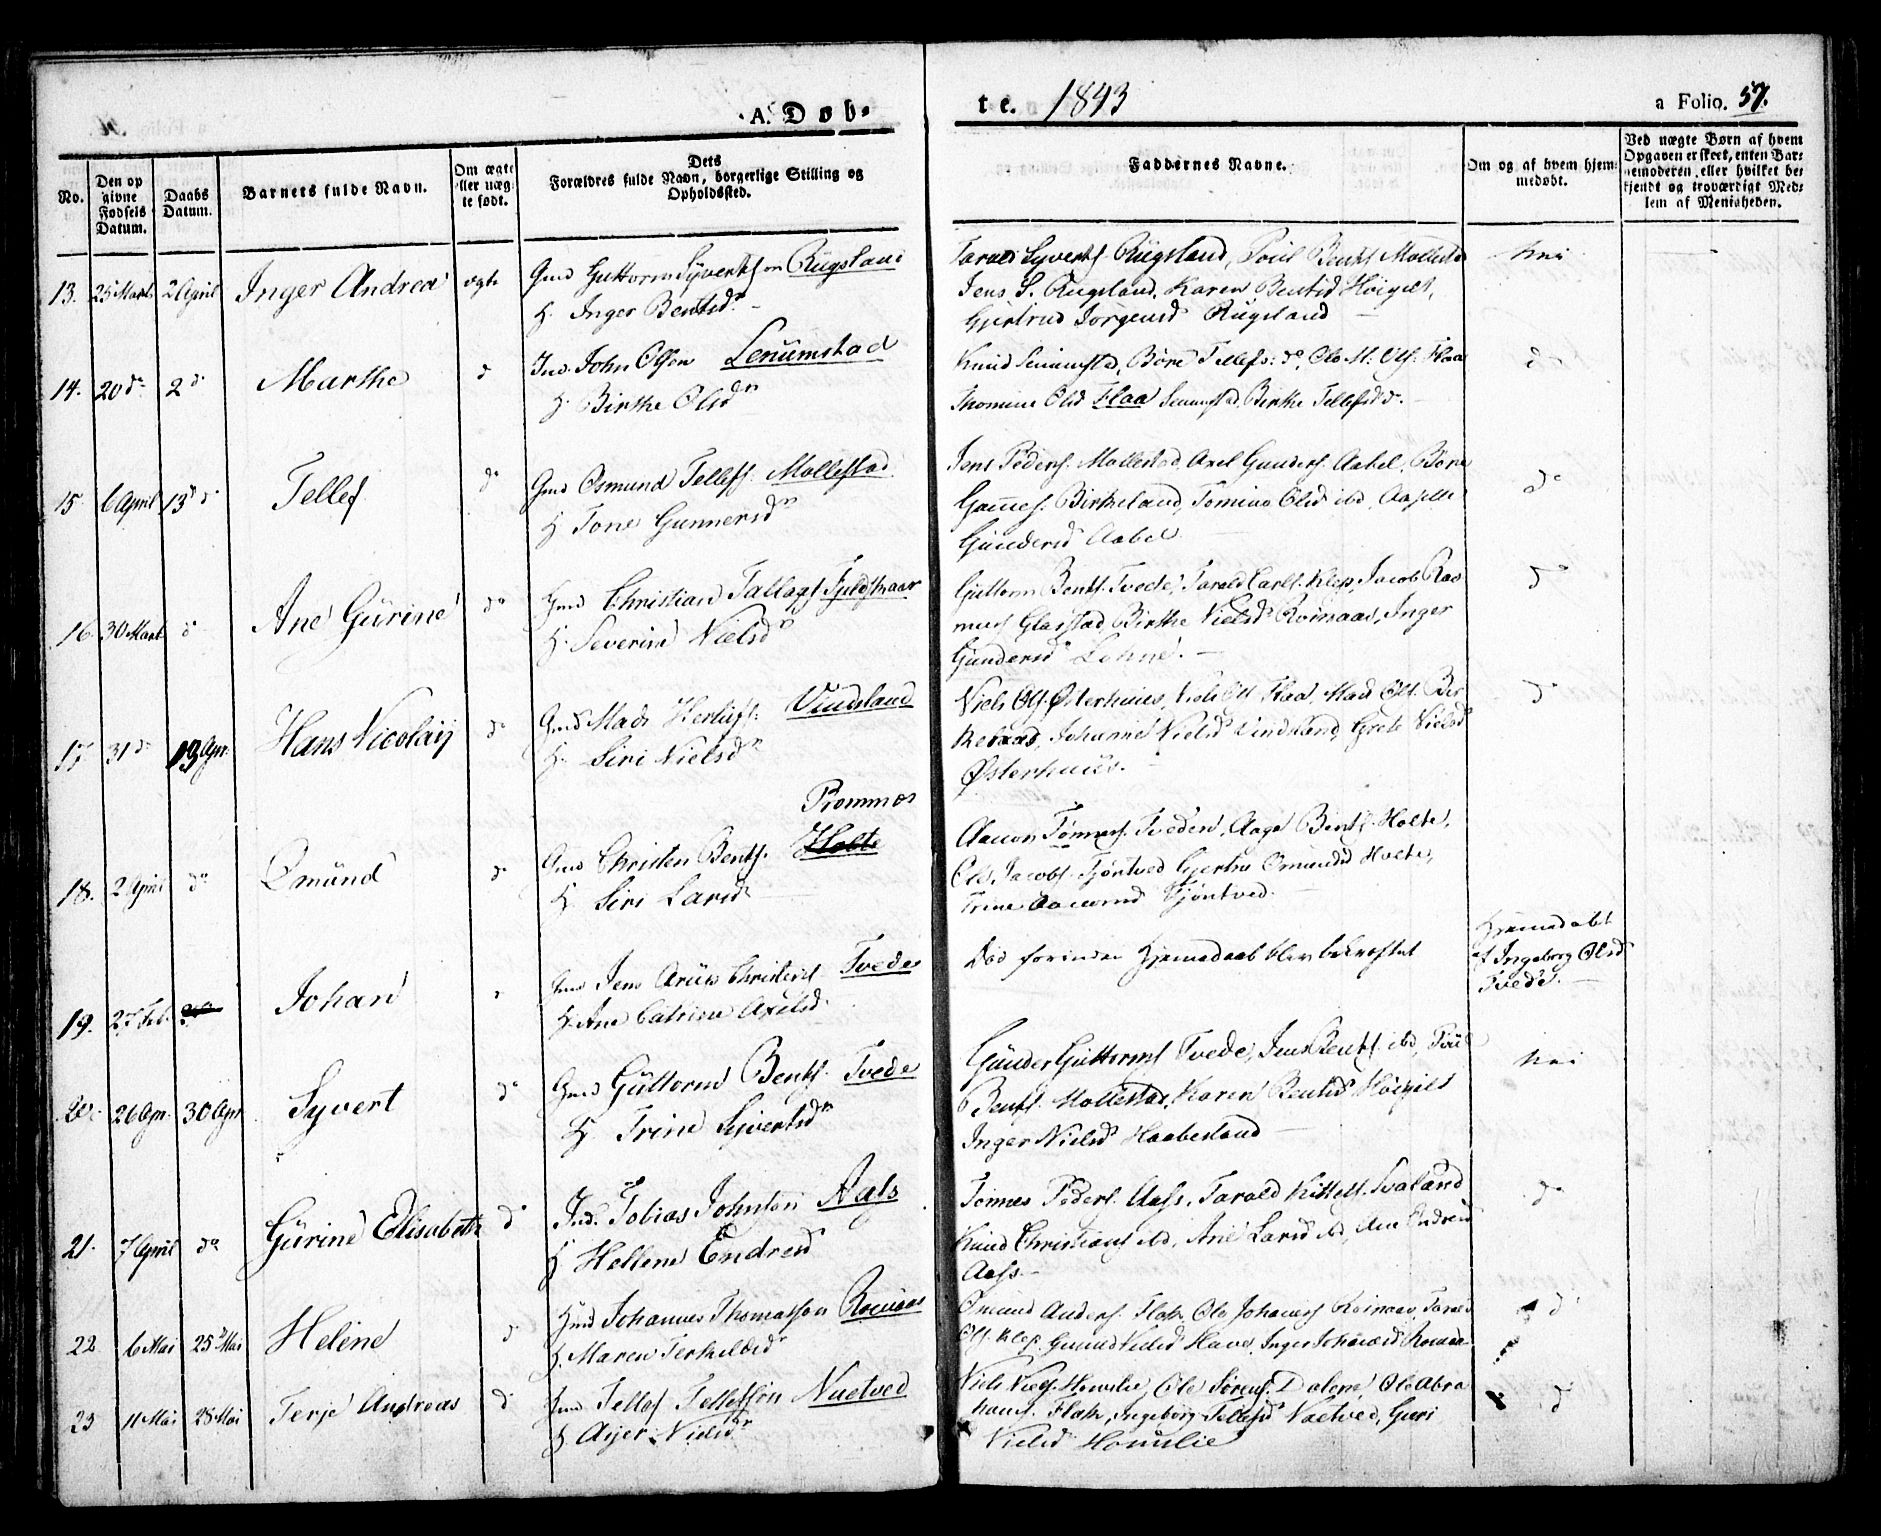 A. Døb-
te. 1843
a Folio. 57.
No.
Den op
givne
Fødsels
Datum.
Daabs
Datum.
Barnets fulde Navn.
Om ægte
eller uæg-
te født.
Dets
Forældres fulde Navn, borgerlige Stilling og
Opholdssted.
Faddernes Navne.
Om og af hvem hjem-
medøbt.
Ved uægte Børn af hvem
Opgaven er skeet, enten Bar-
nemoderen, eller hvilket be-
kjendt og troværdigt Med-
lem af Menigheden.
13. 25 Marts 2 April Inger Andrea ægte Gmd Guttorm Syvertson Rügsland
H. Inger Bentsd.
Tarald Syverts. Rügsland, Poul Bents Mollestad
Jens S. Rugsland, Karen Bentsd Höigilt,
Gjertrud Jörgensd Rügsland
nei
14. 20 do 2 do Marthe do Ind. John Olsen Senümstad
H. Birthe Olsdn
Knud Senumstad, Böre Tellefs: do, Ole Flaa
Thomine Olsd Flaa Senumstad, Birthe Tellefsd do.
do
15 6 April 13 do Tellef do Gmd Osmund Tellefs. Mollestad
H Tone Gunnersdn
Jens Peders. Mollestad, Axel Gunders. Aabel, Böre
Birkeland, Tomine Olsd ibd, Aaselle
Gundersd Aabel
do
16 30 Marts do Ane Gürine do Gmd Christian Tallags
H. Severine Nielsd
Guttorm Bents. Tvede, Tarald Carls. Klep, Jacob Ras
mus Glastad, Birthe Nielsd Roinaas, Inger
Gundersd Lohne.
do
17 31 do 13 Apr. Hans Nicolaij do Gmd Mads Herlufs. Vindsland
H. Siri Nielsdn
Niels Ols. Østerhuus, Niels Flaa, Mads Ols. Bir
Johanne Nielsd Vindsland, Grete Nielsd
Østerhuus.
do
18. 2 April do Osmünd do Gmd Christen Bents. Holte
Rommes
H. Siri Larsd
Aanon Tönnes. Tveden, Aage Bents. Holte,
Ole Jacobs. Fjöntved Gjertru Osmundsd Holte,
Trine Fjöntved
19. 27 Feb. Johan Gmd Jens Christens Tvede
H. Ane Catrine Axelsd
Död forinden Hjemedaab blev bekræftet
Hjemedøbt
af Ingeborg Olsd
Tvede.
20. 26 Apr. 30 Apr Syvert do Gmd Güttorm Bents. Tvede
H. Trine Syvertsdn
Günder Guttorms Tvede, Jens Bents. ibd,
Bents. Mollestad, Karen Bentsd Höigilt
Inger Nielsd Haabesland
nei
21. 7 April do Gürine Elisabeth do Ind. Tobias Johnson Aals
H Hellene Endresd
Tönnes Peders. Aass. Tarald Kittels. Svaland
Knud Christians ibd, Ane Larsd ibd, Ane Andresd
Aass.
do
22 6 Mai 25 Mai Helene do Hmd Johannes Thomasson Roinaas
H. Maren Terkelsd
Osmund Anders. Flak, Ole Johannes Roinaas Tarald
Ols. Klep. Gunnild Nielsd Have, Inger Johansd Roinaas
do
23 11 Mai 25 Mai Terje Andreas do Hmd Tellef Tellefson Nuetved
H Aijer Nielsdn
Niels Niels. Homelie, Ole Sörens. Dalene, Ole Abra
hams. Flak, Ingeborg Tellefsd Naetved, Guri
Nielsd Homelie
do